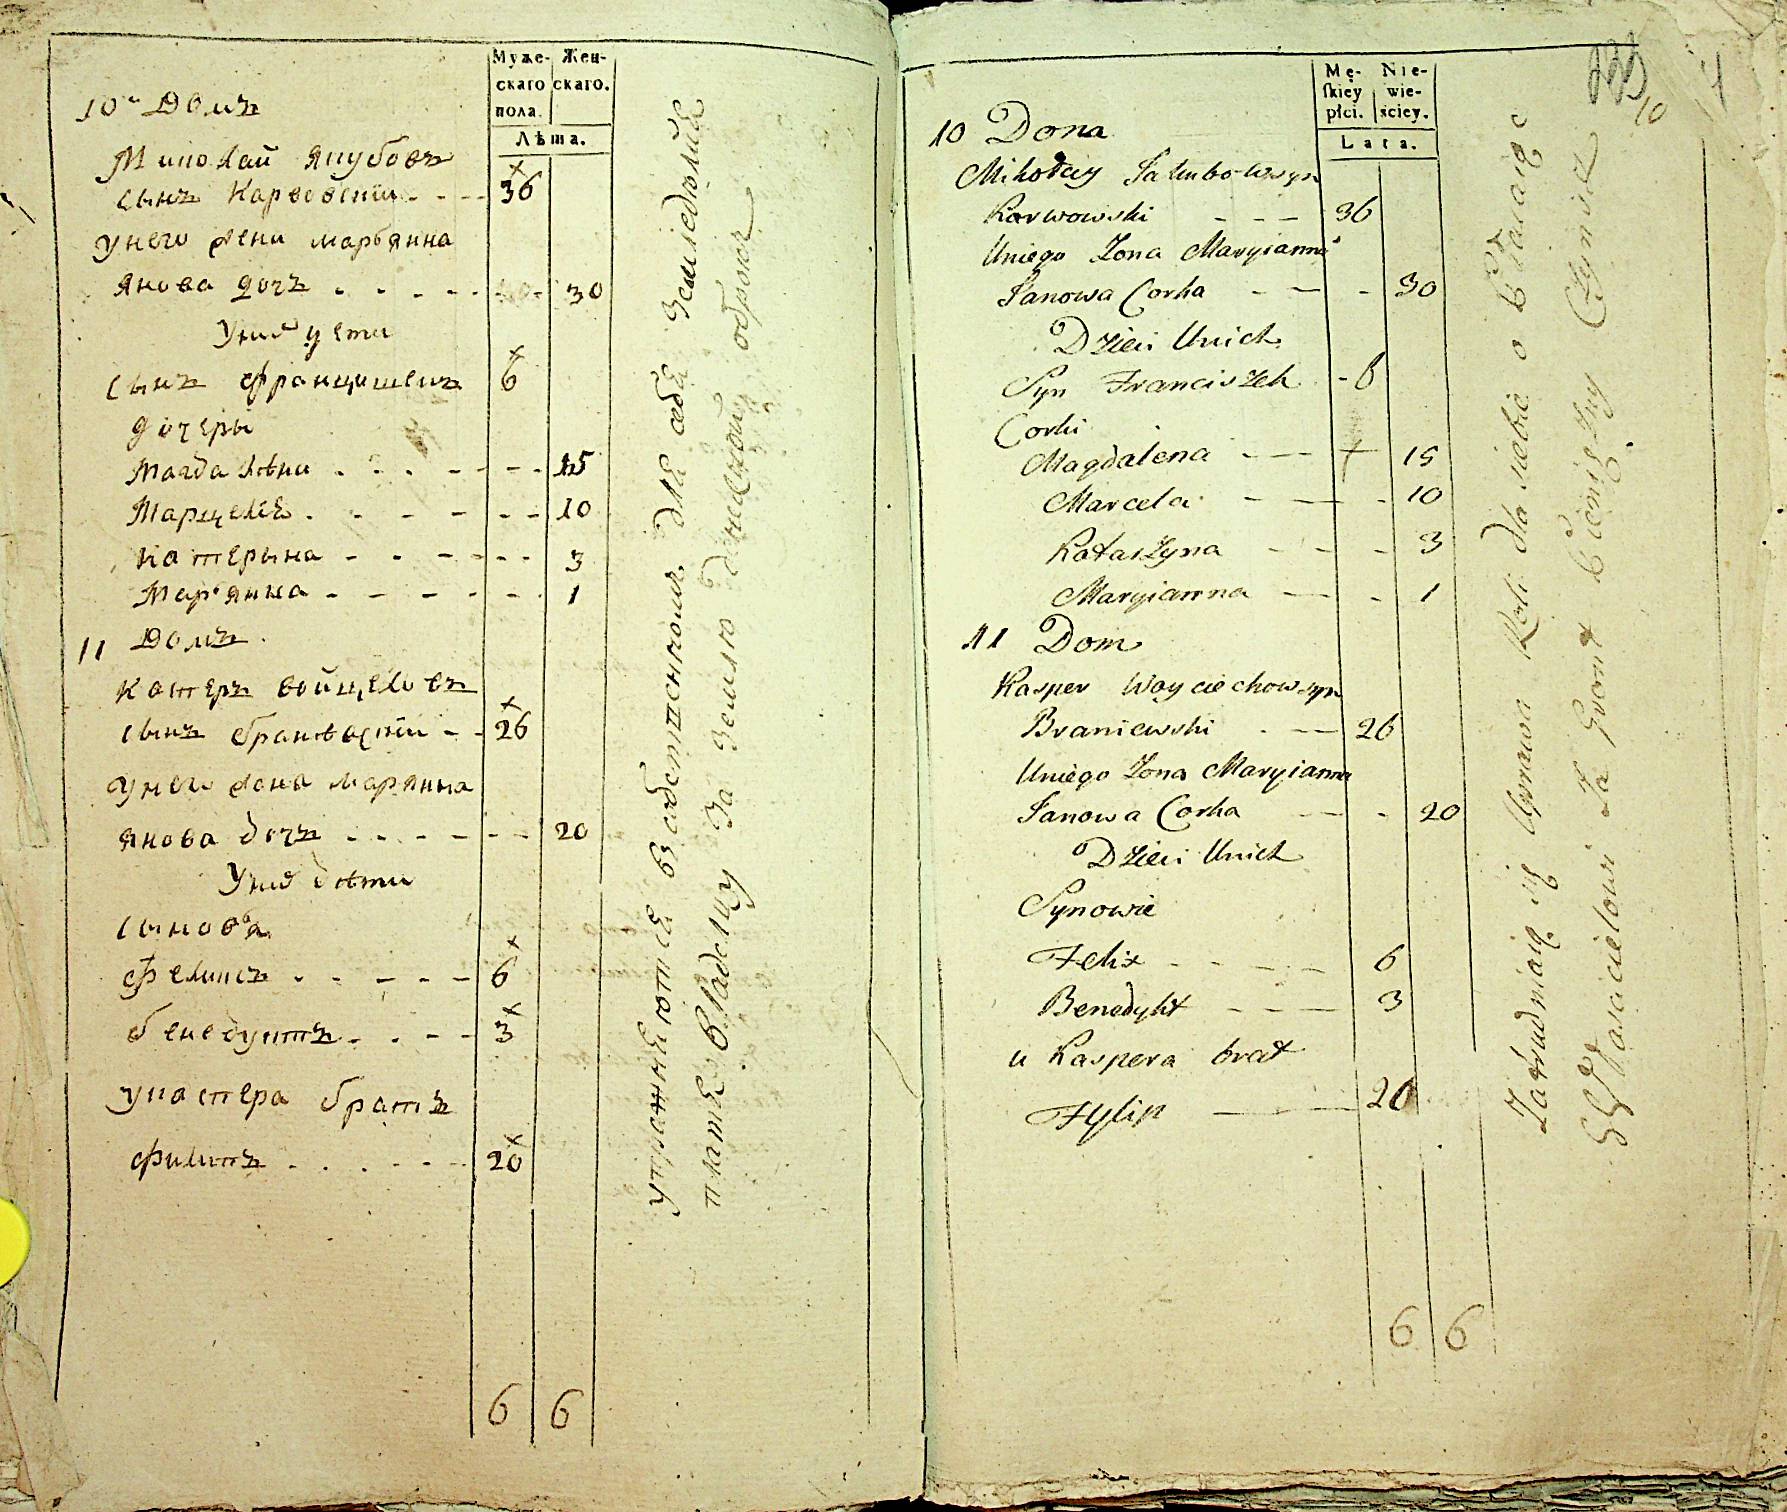 Муже-
скаго
пола.
Жен-
скаго.
Лѣта.
10й Домъ
Миколай Якубовъ
сынъ Карвовскій - - - 36
У него жена Марьянна
Янова дочь - - - - - 30
У них дети
сынъ Францишекъ 6
дочеры
Магдалѣна - - - - - 15
Марцеля - - - - - 10
Катерына - - - - - 3
Марьянна - - - - - 1
11 Домъ
Каспер Войцехов
сынъ Браневскій - - 26
У него жена Марянна
Янова дочь - - - - - 20
У них дѣти
сыновья
Феликсъ - - - - - 6
Бенедуктъ - - - - 3
У Каспера братъ
Филипъ - - - - - 20
6 6
упражняются в собственном для себя земледѣлии
платя Владельцу За Землю денежной оброкъ
Mę-
skiey
płci.
Nie-
wie-
sciey.
Lata.
10
10 Doma
Mikołay Jakubow syn
Karwowski - - - 36
U niego Zona Maryianna
Janowa Corka - - - 30
Dzieci U nich
Syn Franciszek - 6
Corki
Magdalena - - - 15
Marcela - - - 10
Katarzyna - - - 3
Maryianna - - - 1
11 Dom
Kasper Woyciechow syn
Braniewski - - - 26
U niego Zona Maryianna
Janowa Corka - - - 20
Dzieci U nich
Synowie
Felix - - - - 6
Benedykt - - - 3
u Kaspera brat
Fylip - - - 20
6 6
Zatrudniaią się Uprawą Roli dla siebie o Płacaiąc
Własicielowi Za Gront Pieniężny Czynsz